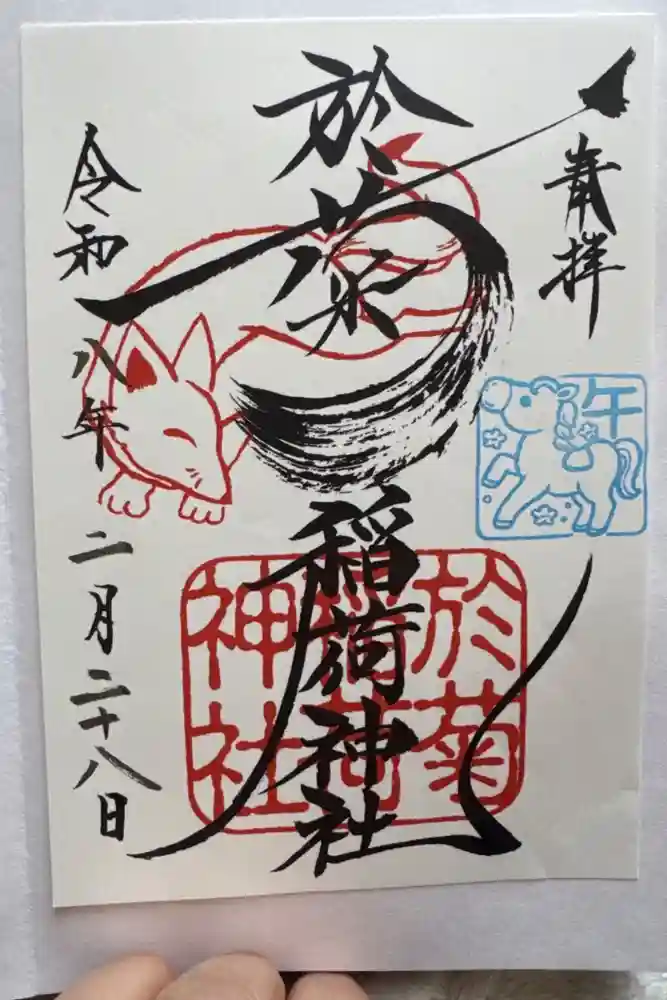 奉拝
午
於菊
稲荷神社
於菊
稲荷
神社
令和八年二月二十八日